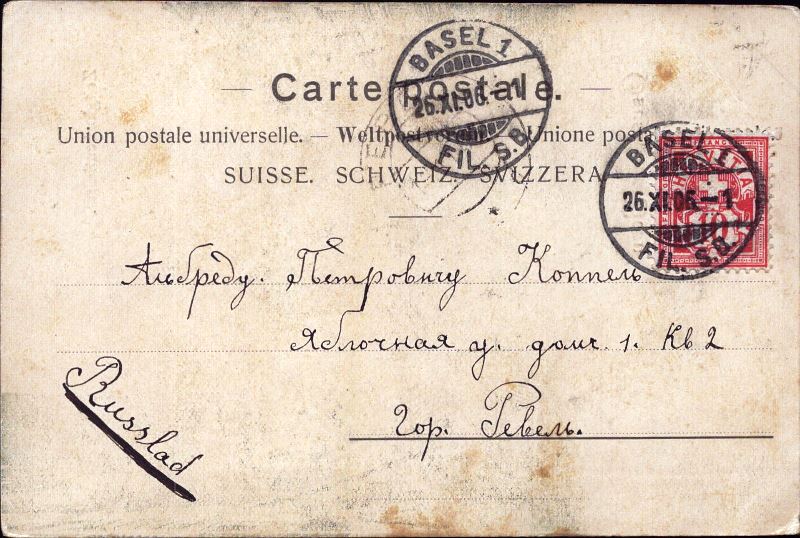 Carte postale.
Union postale universelle. — Weltpostverein. — Unione posta
SUISSE. SCHWEIZ. SVIZZERA
BASEL 1
26.XI.06.–1
FIL. S.B.
BASEL 1
26.XI.06.–1
FIL. S.B.
FRANCO
HELVETIA
10
Альбреду. Петровичу Коппель
Яблочная у. домъ 1. Кв 2
Гор. Ревель.
Russlad